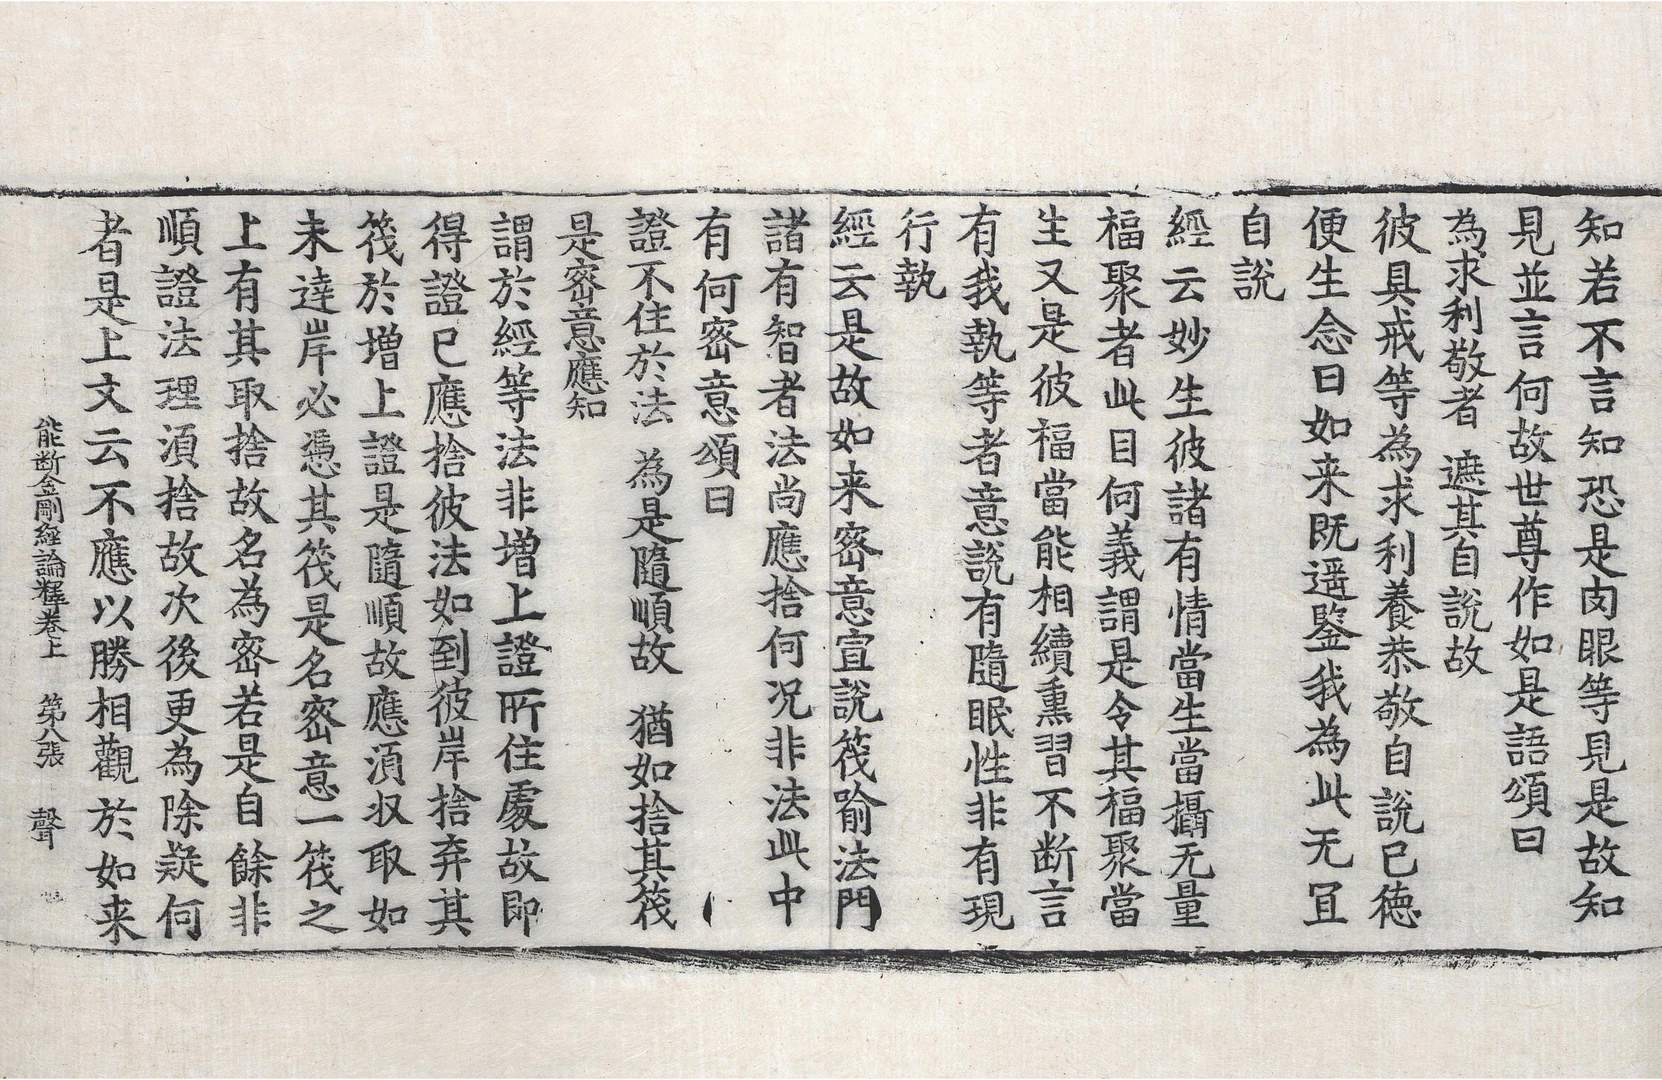 知若不言知恐是肉眼等見是故知
見並言何故世尊作如是語頌曰
為求利敬者 遮其自說故
彼具戒等為求利養恭敬自說已德
便生念曰如来既遥鑒我為此无宜
自說
經云妙生彼諸有情當生當攝无量
福聚者此目何義謂是令其福聚當
生又是彼福當能相續熏習不断言
有我執等者意說有隨眠性非有現
行執
經云是故如来密意宣說筏喻法門
諸有智者法尚應捨何况非法此中
有何密意頌曰
證不住於法 為是隨順故 猶如捨其筏
是密意應知
謂於經等法非增上證所住處故即
得證已應捨彼法如到彼岸捨弃其
筏於增上證是隨順故應湏収取如
未達岸必憑其筏是名密意一筏之
上有其取捨故名為密若是自餘非
順證法理湏捨故次後更為除疑何
者是上文云不應以勝相觀於如来
能断金剛經論釋卷上 第八張 聲